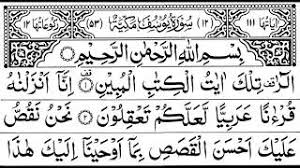 اٰيَاتُهَا ١١١ (١٢) سُوْرَةُ يُوْسُفَ مَكِّيَّةٌ (٥٣) رُكُوْعَاتُهَا ١٢
بِسْمِ اللّٰهِ الرَّحْمٰنِ الرَّحِيْمِ
الٓرٰ تِلْكَ اٰيٰتُ الْكِتٰبِ الْمُبِيْنِ ١ اِنَّآ اَنْزَلْنٰهُ
قُرْءٰنًا عَرَبِيًّا لَّعَلَّكُمْ تَعْقِلُوْنَ ٢ نَحْنُ نَقُصُّ
عَلَيْكَ اَحْسَنَ الْقَصَصِ بِمَآ اَوْحَيْنَآ اِلَيْكَ هٰذَا